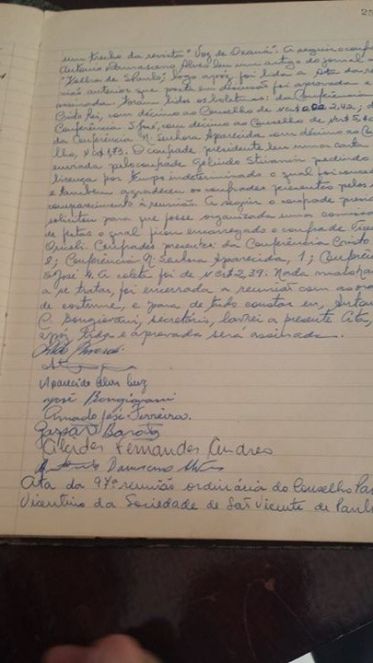 um trecho da revista "Voz de Ozanã". A seguir o conf
Antonio Damasceno Alves leu um artigo do jornal a
"Folha de São Paulo; logo após foi lida a Ata da reu
nião anterior que posta em discussão foi aprovada e
assinada. Foram lidos os boletos: da Conferência
Cristo Rei, com décimo ao Conselho de 2,40; d
Conferência S. José, com décimo ao Conselho de
da Conferência N. Senhora Aparecida com décimo ao Con
lho, O confrade presidente leu uma carta
enviada pelo confrade Gelindo Stivanin pedindo
licença por tempo indeterminado o qual foi conce
e também agradeceu os confrades presentes pelos
comparecimento à reunião. A seguir o confrade presi
solicitou para que fosse organizada uma comissão
de festas o qual ficou encarregado o confrade
Confrades presentes: da Conferência Cristo
8; Conferência N. Senhora Aparecida, 1; Conferênc
S. José 4. A coleta foi de 2,39. Nada mais hav
a se tratar, foi encerrada a reunião com as ora
de costume, e para de tudo constar eu, Antonio
C. Bongiovani, secretário, lavrei a presente Ata,
após lida e aprovada será assinada.
Aparecido
José Bongiovani
Amado José Ferreira.
Gaspar Barota
Alcides Fernandes Andreo
Antonio Damasceno Alves
Ata da 97ª reunião ordinária do Conselho Par
Vicentino da Sociedade de São Vicente de Paulo